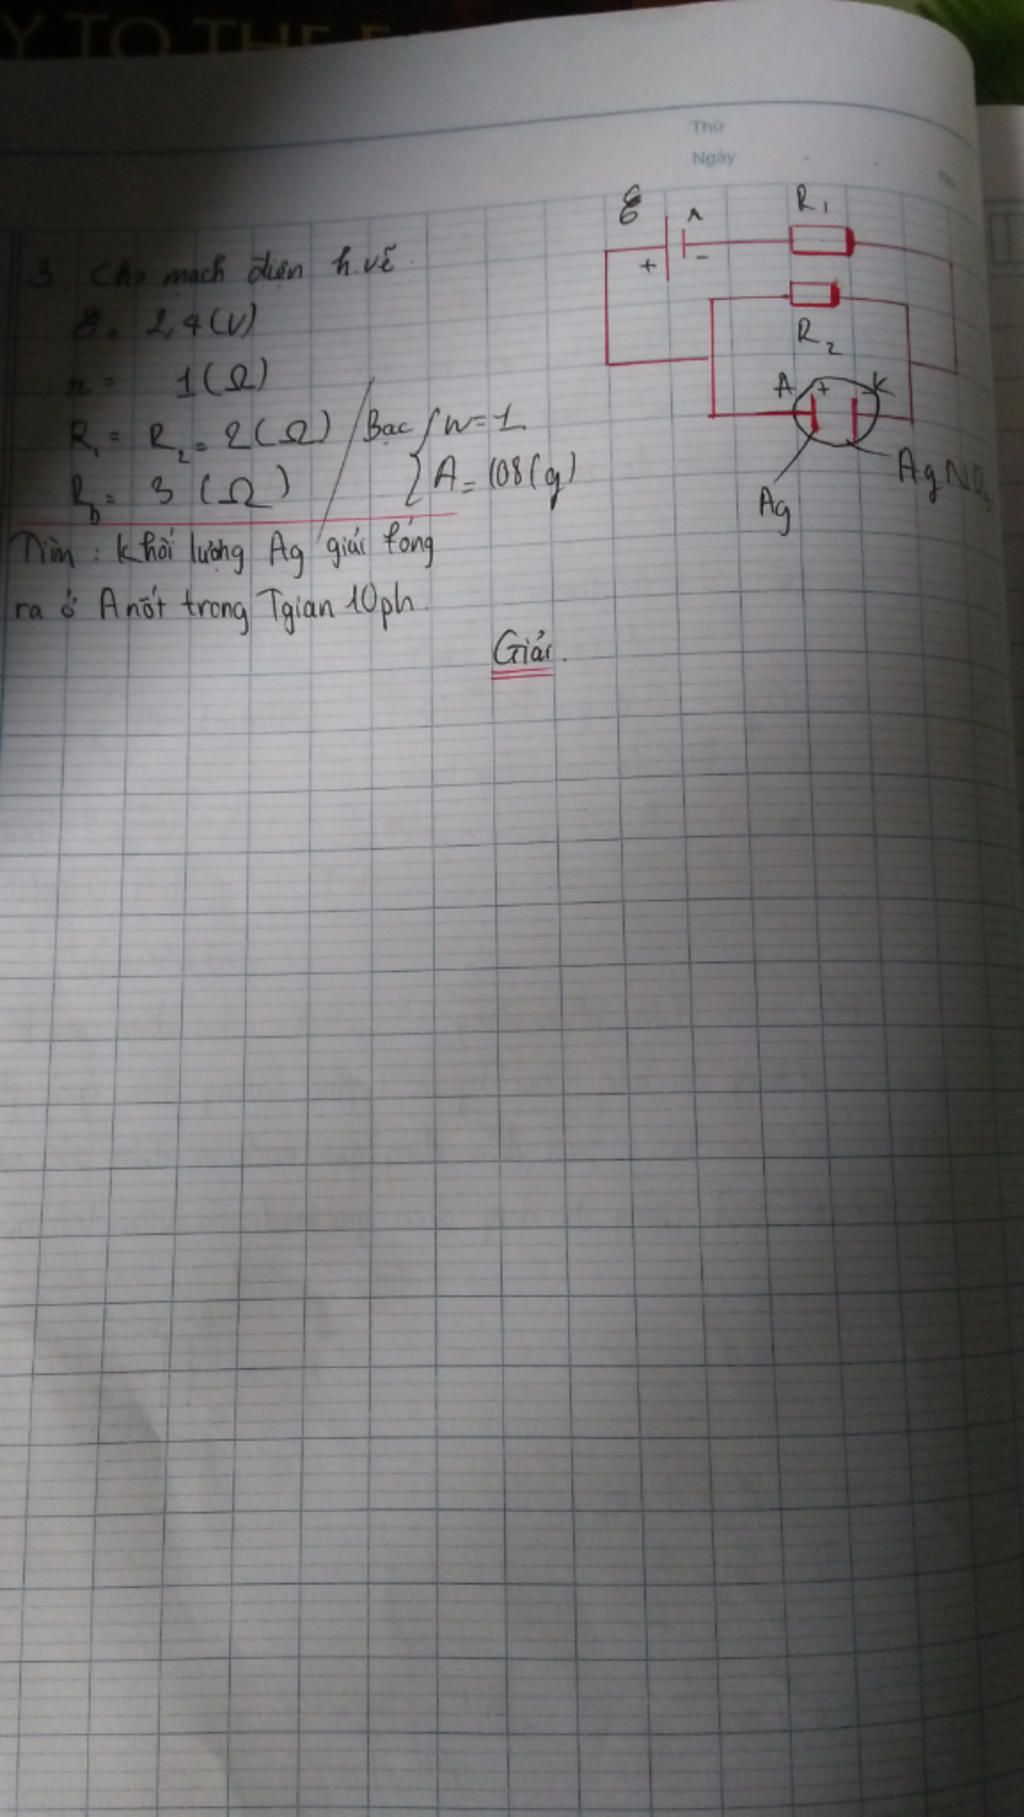 Y TO THE
Thứ
Ngày
3. Cho mạch điện h.vẽ.
ℰ = 2,4 (V)
r = 1 (Ω)
R₁ = R₂ = 2 (Ω) / Bạc { n = 1
R_b = 3 (Ω) { A = 108 (g)
Tìm : khối lượng Ag giải fóng
ra ở Anốt trong Tgian 10ph.
Giải.
ℰ r R₁
+ -
R₂
A + K
Ag AgNO₃